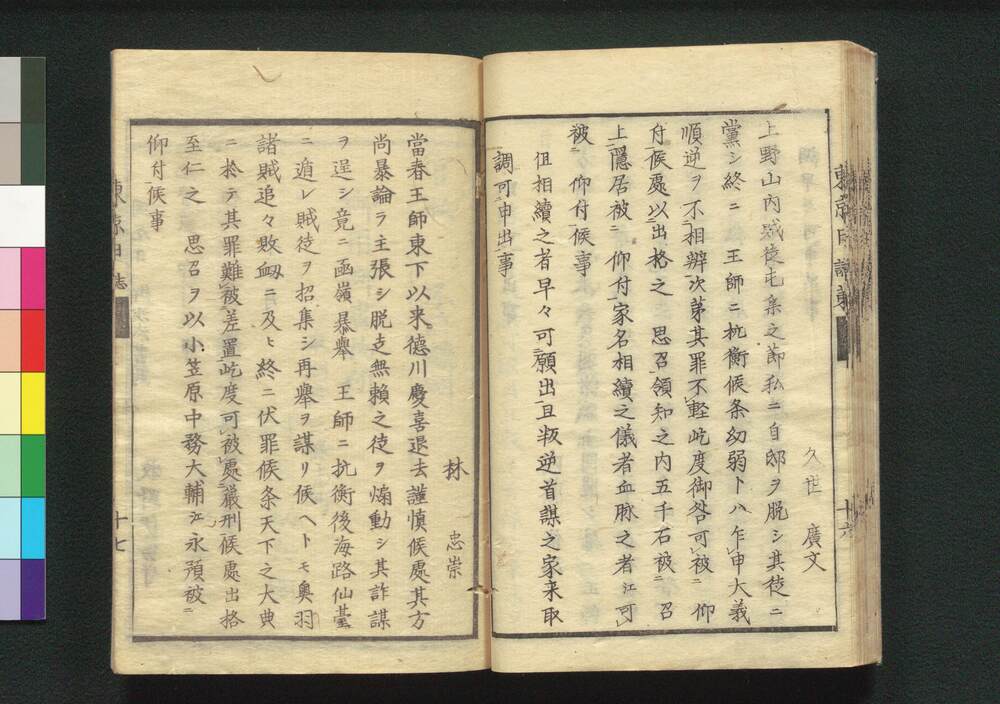 久世 廣文
上野山内賊徒屯集之節私ニ自邸ヲ脱シ其徒ニ
黨シ終ニ 王師ニ抗衡候条幼弱トハ乍申大義
順逆ヲ不相辨次第其罪不軽屹度御咎可被 仰
付候處以出格之 思召領知之内五千石被 召
上隠居被 仰付家名相續之儀者血脉之者江可
被 仰付候事
但相續之者早々可願出且叛逆首謀之家来取
調可申出事
十六
林 忠崇
當春王師東下以来德川慶喜退去謹慎候處其方
尚暴論ヲ主張シ脱走無賴之徒ヲ煽動シ其詐謀
ヲ逞シ竟ニ函嶺暴擧 王師ニ抗衡後海路仙臺
ニ遁レ賊徒ヲ招集シ再擧ヲ謀リ候ヘトモ奥羽
諸賊追々敗衂ニ及ヒ終ニ伏罪候条天下之大典
ニ於テ其罪難被差置屹度可被處嚴刑候處出格
至仁之 思召ヲ以小笠原中務大輔江永預被
仰付候事
東京日誌
十七